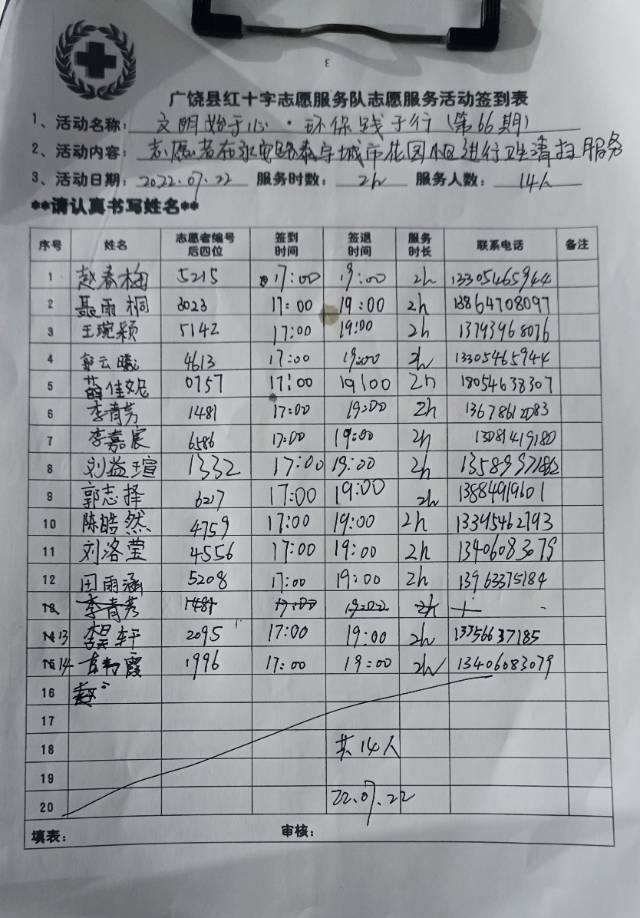 广饶县红十字志愿服务队志愿服务活动签到表
1、活动名称: 文明始于心·环保践于行(第66期)
2、活动内容: 志愿者在 城市花园小区进行卫生清扫服务
3、活动日期: 2022.07.22 服务时数: 2h 服务人数: 14人
**请认真书写姓名**
序号 姓名 志愿者编号后四位 签到时间 签退时间 服务时长 联系电话 备注
1 赵春梅 5215 17:00 19:00 2h 13305465944
2 聂雨桐 3023 17:00 19:00 2h 13864708097
3 王琬颖 5142 17:00 19:00 2h 13793968076
4 郭云曦 4613 17:00 19:00 2h 13305465944
5 薛佳妮 0757 17:00 19:00 2h 18054638307
6 李青芳 1481 17:00 19:00 2h
7 李嘉宸 6586 17:00 19:00 2h 13081419180
8 刘益瑄 1332 17:00 19:00 2h
9 郭志择 6217 17:00 19:00 2h 13884919601
10 陈皓然 4759 17:00 19:00 2h 13395462793
11 刘洛莹 4556 17:00 19:00 2h 13406083079
12 田雨涵 5208 17:00 19:00 2h 13963375184
13 李青芳 1481 17:00 2h
14 13 轩 2095 17:00 19:00 2h 13756637185
15 14 霞 1996 17:00 19:00 2h 13406083079
16 赵
17
18 共14人
19
20 22.07.22
填表: 审核: